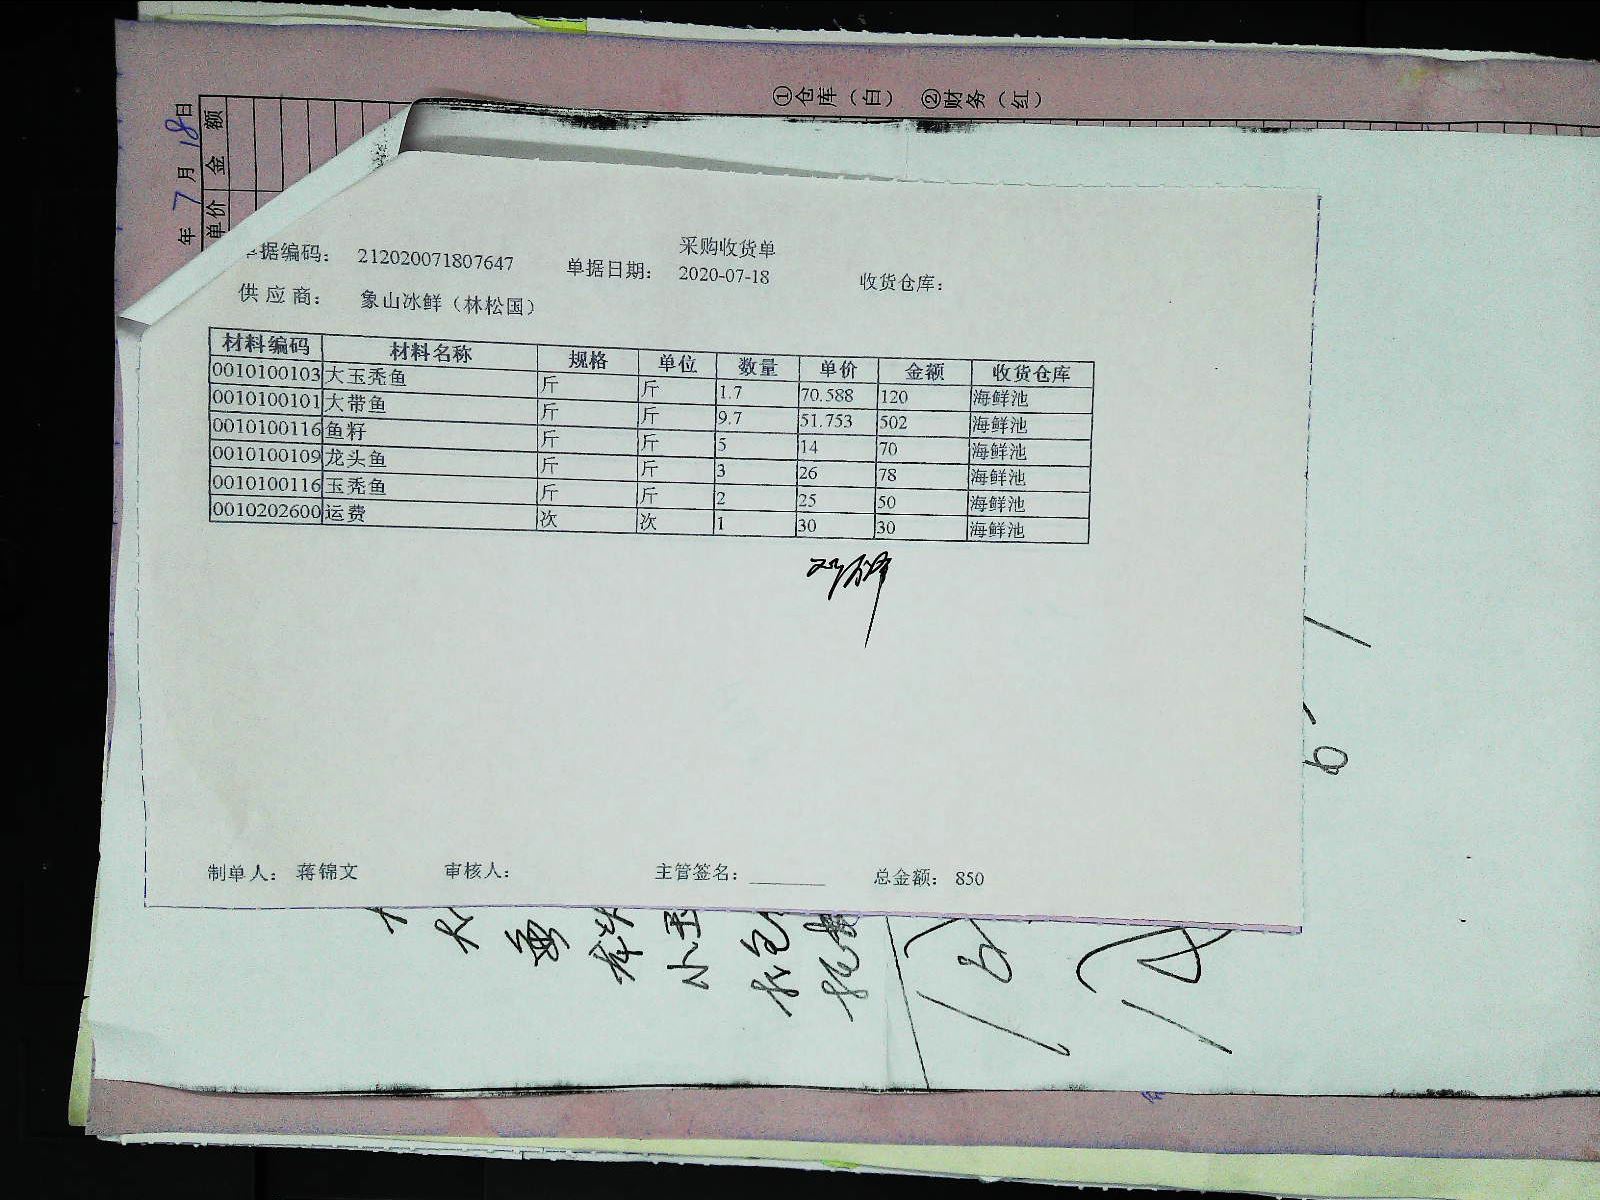 ①仓库（白） ②财务（红）
年7月18日
单价 金额
采购收货单
据编码： 212020071807647 单据日期： 2020-07-18 收货仓库：
供应商： 象山冰鲜（林松国）
材料编码 材料名称 规格 单位 数量 单价 金额 收货仓库
0010100103 大玉秃鱼 斤 斤 1.7 70.588 120 海鲜池
0010100101 大带鱼 斤 斤 9.7 51.753 502 海鲜池
0010100116 鱼籽 斤 斤 5 14 70 海鲜池
0010100109 龙头鱼 斤 斤 3 26 78 海鲜池
0010100116 玉秃鱼 斤 斤 2 25 50 海鲜池
0010202600 运费 次 次 1 30 30 海鲜池
制单人： 蒋锦文 审核人： 主管签名： 总金额： 850